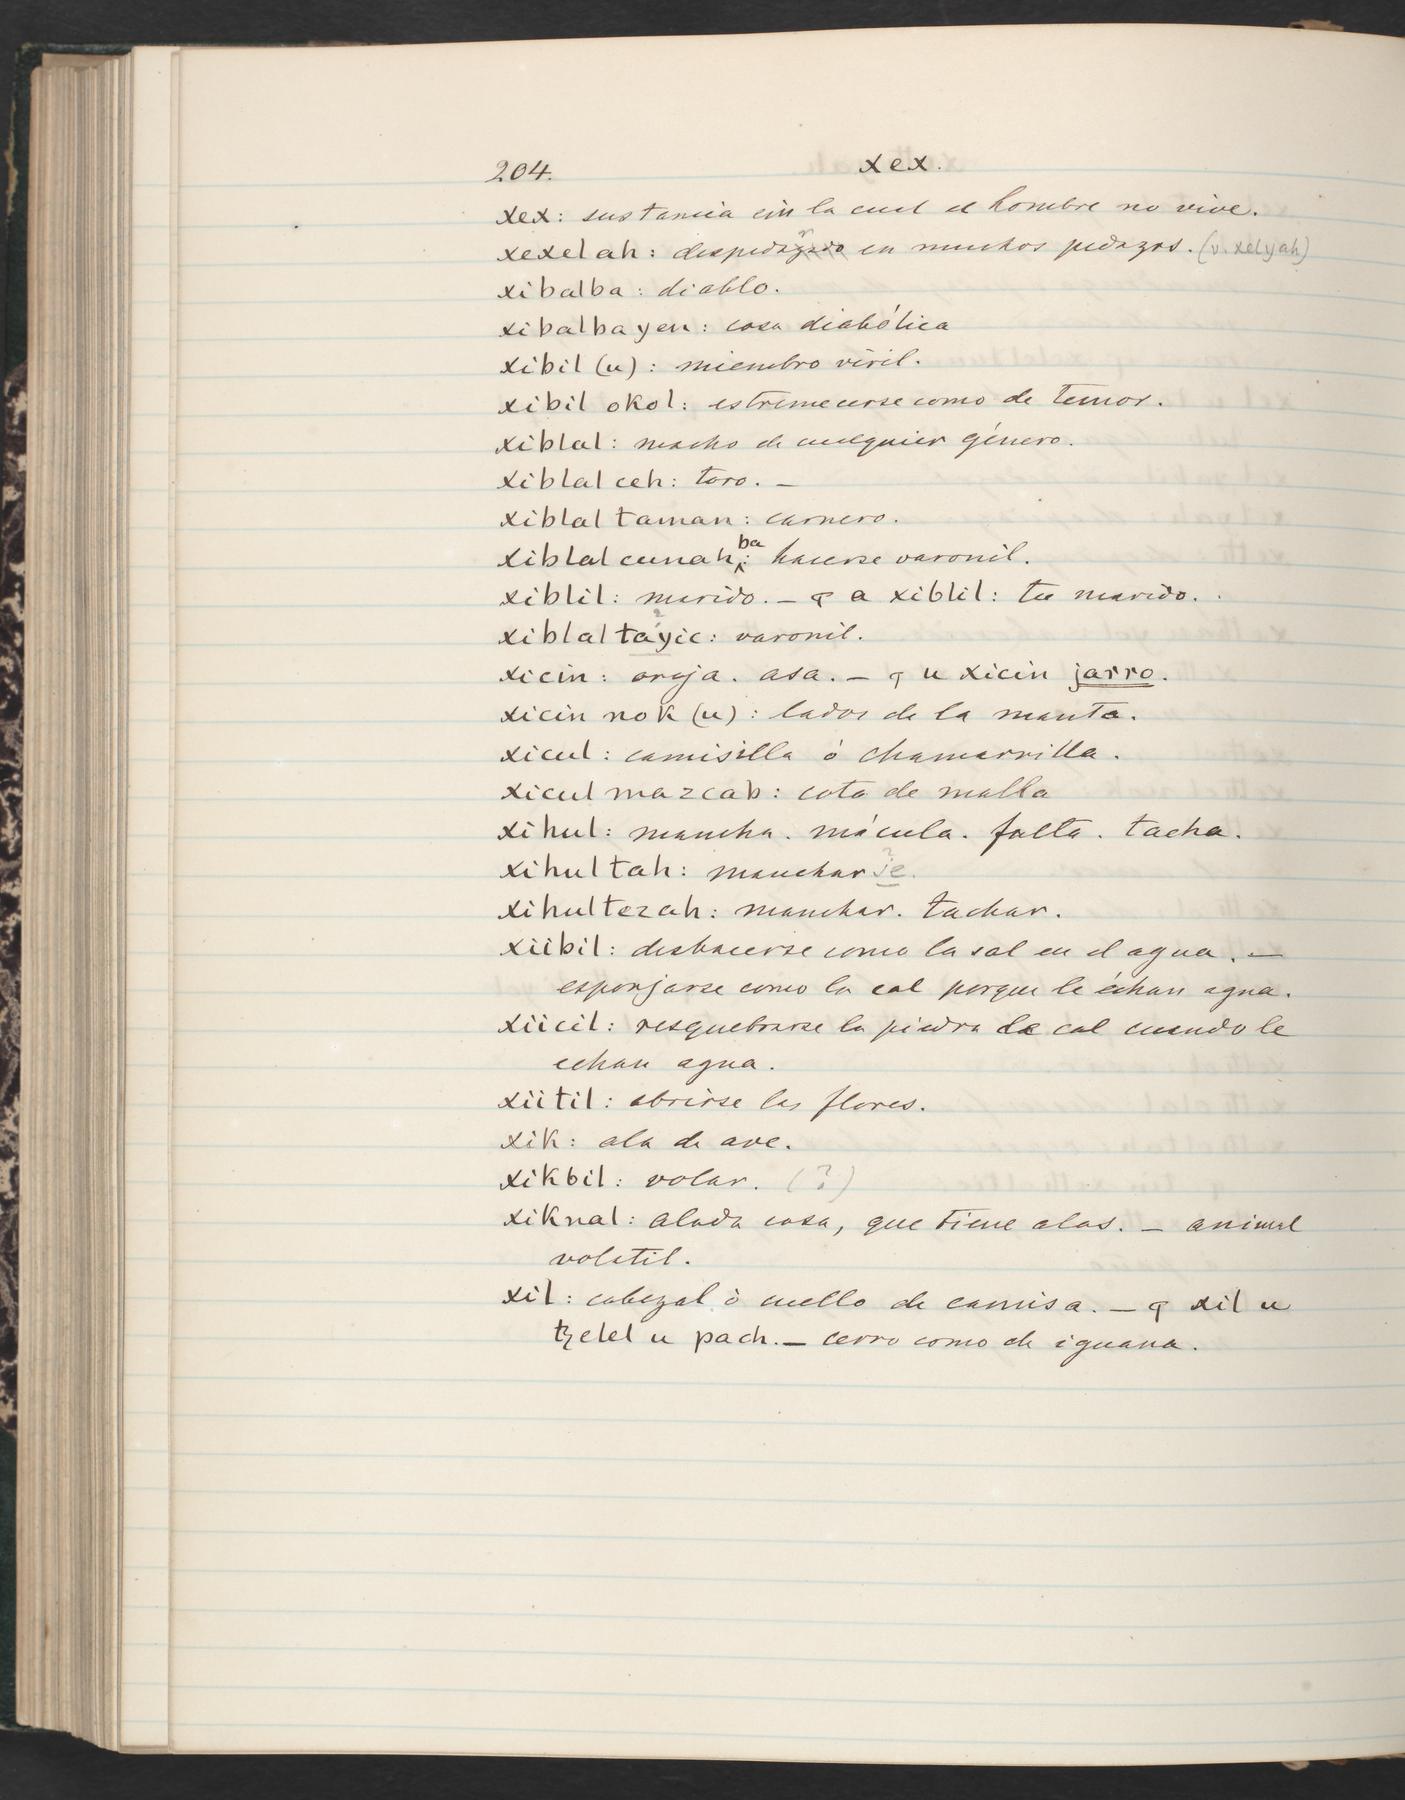 204. xex.
xex: sustancia sin la cual el hombre no vive.
xexelah: despedazado en muchos pedazos. (v. xelyah)
xibalba: diablo.
xibalbayen: cosa diabólica
xibil (u): miembro viril.
xibil okol: estremecerse como de temor.
xiblal: macho de cualquier género.
xiblal ceh: toro. –
xiblal taman: carnero.
xiblal cunah ba: hacerse varonil.
xiblil: marido. – q a xiblil: tu marido.
xiblal tayic: varonil.
xicin: oreja. asa. – q u xicin jarro.
xicin nok (u): lados de la manta.
xicul: camisilla ó chamarrilla.
xicul mazcab: cota de malla
xihul: mancha. mácula. falta. tacha.
xihultah: manchar se.
xihultezah: manchar. tachar.
xiibil: deshacerse como la sal en el agua. –
esponjarse como la cal porque le échan agua.
xiicil: resquebrarse la piedra de cal cuando le
echan agua.
xiitil: abrirse las flores.
xik: ala de ave.
xikbil: volar. (?)
xiknal: alada cosa, que tiene alas. – animal
volatil.
xil: cabezal ò cuello de camisa. – q xil u
tzelel u pach. – cerro como de iguana.